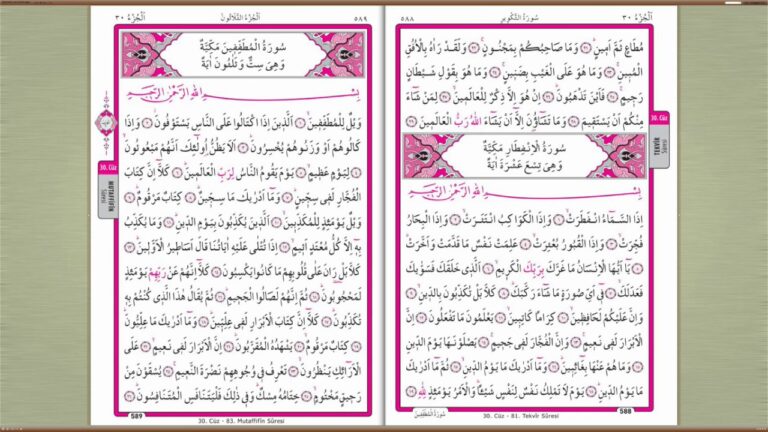 اَلْجُزْءُ ٣٠ سُورَةُ التَّكْوِيرِ ٥٨٨
مُطَاعٍ ثَمَّ اَمِينٍ ﴿٢١﴾ وَمَا صَاحِبُكُمْ بِمَجْنُونٍ ﴿٢٢﴾ وَلَقَدْ رَاٰهُ بِالْاُفُقِ
الْمُبِينِ ﴿٢٣﴾ وَمَا هُوَ عَلَى الْغَيْبِ بِضَنِينٍ ﴿٢٤﴾ وَمَا هُوَ بِقَوْلِ شَيْطَانٍ
رَجِيمٍ ﴿٢٥﴾ فَاَيْنَ تَذْهَبُونَ ﴿٢٦﴾ اِنْ هُوَ اِلَّا ذِكْرٌ لِلْعَالَمِينَ ﴿٢٧﴾ لِمَنْ شَاءَ
مِنْكُمْ اَنْ يَسْتَقِيمَ ﴿٢٨﴾ وَمَا تَشَاؤُنَ اِلَّا اَنْ يَشَاءَ اللّٰهُ رَبُّ الْعَالَمِينَ ﴿٢٩﴾
سُورَةُ الْاِنْفِطَارِ مَكِّيَّةٌ
وَهِىَ تِسْعَ عَشْرَةَ اٰيَةً
بِسْمِ اللّٰهِ الرَّحْمٰنِ الرَّحِيمِ
اِذَا السَّمَاءُ انْفَطَرَتْ ﴿١﴾ وَاِذَا الْكَوَاكِبُ انْتَثَرَتْ ﴿٢﴾ وَاِذَا الْبِحَارُ
فُجِّرَتْ ﴿٣﴾ وَاِذَا الْقُبُورُ بُعْثِرَتْ ﴿٤﴾ عَلِمَتْ نَفْسٌ مَا قَدَّمَتْ وَاَخَّرَتْ
﴿٥﴾ يَا اَيُّهَا الْاِنْسَانُ مَا غَرَّكَ بِرَبِّكَ الْكَرِيمِ ﴿٦﴾ اَلَّذِى خَلَقَكَ فَسَوّٰيكَ
فَعَدَلَكَ ﴿٧﴾ فِى اَىِّ صُورَةٍ مَا شَاءَ رَكَّبَكَ ﴿٨﴾ كَلَّا بَلْ تُكَذِّبُونَ بِالدِّينِ ﴿٩﴾
وَاِنَّ عَلَيْكُمْ لَحَافِظِينَ ﴿١٠﴾ كِرَامًا كَاتِبِينَ ﴿١١﴾ يَعْلَمُونَ مَا تَفْعَلُونَ ﴿١٢﴾ اِنَّ
الْاَبْرَارَ لَفِى نَعِيمٍ ﴿١٣﴾ وَاِنَّ الْفُجَّارَ لَفِى جَحِيمٍ ﴿١٤﴾ يَصْلَوْنَهَا يَوْمَ الدِّينِ
﴿١٥﴾ وَمَا هُمْ عَنْهَا بِغَائِبِينَ ﴿١٦﴾ وَمَا اَدْرٰيكَ مَا يَوْمُ الدِّينِ ﴿١٧﴾ ثُمَّ مَا اَدْرٰيكَ
مَا يَوْمُ الدِّينِ ﴿١٨﴾ يَوْمَ لَا تَمْلِكُ نَفْسٌ لِنَفْسٍ شَيْئًا وَالْاَمْرُ يَوْمَئِذٍ لِلّٰهِ ﴿١٩﴾
588
30. Cüz - 81. Tekvîr Sûresi
سُورَةُ الْمُطَفِّفِينَ
30. Cüz
TEKVÎR
Sûresi
اَلْجُزْءُ ٣٠ اَلْجُزْءُ الثَّلَاثُونَ ٥٨٩
سُورَةُ الْمُطَفِّفِينَ مَكِّيَّةٌ
وَهِىَ سِتٌّ وَثَلٰثُونَ اٰيَةً
بِسْمِ اللّٰهِ الرَّحْمٰنِ الرَّحِيمِ
وَيْلٌ لِلْمُطَفِّفِينَ ﴿١﴾ اَلَّذِينَ اِذَا اكْتَالُوا عَلَى النَّاسِ يَسْتَوْفُونَ ﴿٢﴾ وَاِذَا
كَالُوهُمْ اَوْ وَزَنُوهُمْ يُخْسِرُونَ ﴿٣﴾ اَلَا يَظُنُّ اُولٰئِكَ اَنَّهُمْ مَبْعُوثُونَ
﴿٤﴾ لِيَوْمٍ عَظِيمٍ ﴿٥﴾ يَوْمَ يَقُومُ النَّاسُ لِرَبِّ الْعَالَمِينَ ﴿٦﴾ كَلَّا اِنَّ كِتَابَ
الْفُجَّارِ لَفِى سِجِّينٍ ﴿٧﴾ وَمَا اَدْرٰيكَ مَا سِجِّينٌ ﴿٨﴾ كِتَابٌ مَرْقُومٌ ﴿٩﴾
وَيْلٌ يَوْمَئِذٍ لِلْمُكَذِّبِينَ ﴿١٠﴾ اَلَّذِينَ يُكَذِّبُونَ بِيَوْمِ الدِّينِ ﴿١١﴾ وَمَا يُكَذِّبُ
بِهِ اِلَّا كُلُّ مُعْتَدٍ اَثِيمٍ ﴿١٢﴾ اِذَا تُتْلٰى عَلَيْهِ اٰيَاتُنَا قَالَ اَسَاطِيرُ الْاَوَّلِينَ ﴿١٣﴾
كَلَّا بَلْ رَانَ عَلٰى قُلُوبِهِمْ مَا كَانُوا يَكْسِبُونَ ﴿١٤﴾ كَلَّا اِنَّهُمْ عَنْ رَبِّهِمْ يَوْمَئِذٍ
لَمَحْجُوبُونَ ﴿١٥﴾ ثُمَّ اِنَّهُمْ لَصَالُوا الْجَحِيمِ ﴿١٦﴾ ثُمَّ يُقَالُ هٰذَا الَّذِى كُنْتُمْ بِهِ
تُكَذِّبُونَ ﴿١٧﴾ كَلَّا اِنَّ كِتَابَ الْاَبْرَارِ لَفِى عِلِّيِّينَ ﴿١٨﴾ وَمَا اَدْرٰيكَ مَا عِلِّيُّونَ
﴿١٩﴾ كِتَابٌ مَرْقُومٌ ﴿٢٠﴾ يَشْهَدُهُ الْمُقَرَّبُونَ ﴿٢١﴾ اِنَّ الْاَبْرَارَ لَفِى نَعِيمٍ ﴿٢٢﴾ عَلَى
الْاَرَائِكِ يَنْظُرُونَ ﴿٢٣﴾ تَعْرِفُ فِى وُجُوهِهِمْ نَضْرَةَ النَّعِيمِ ﴿٢٤﴾ يُسْقَوْنَ مِنْ
رَحِيقٍ مَخْتُومٍ ﴿٢٥﴾ خِتَامُهُ مِسْكٌ وَفِى ذٰلِكَ فَلْيَتَنَافَسِ الْمُتَنَافِسُونَ ﴿٢٦﴾
589
30. Cüz - 83. Mutaffifîn Sûresi
30. Cüz
MUTAFFİFÎN
Sûresi